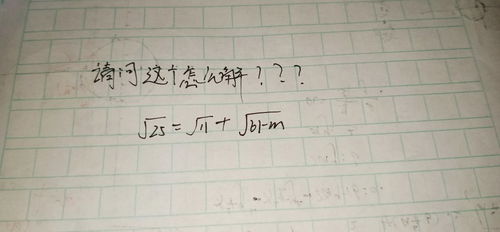 请问这个怎么解???
√25=√11+√61-m